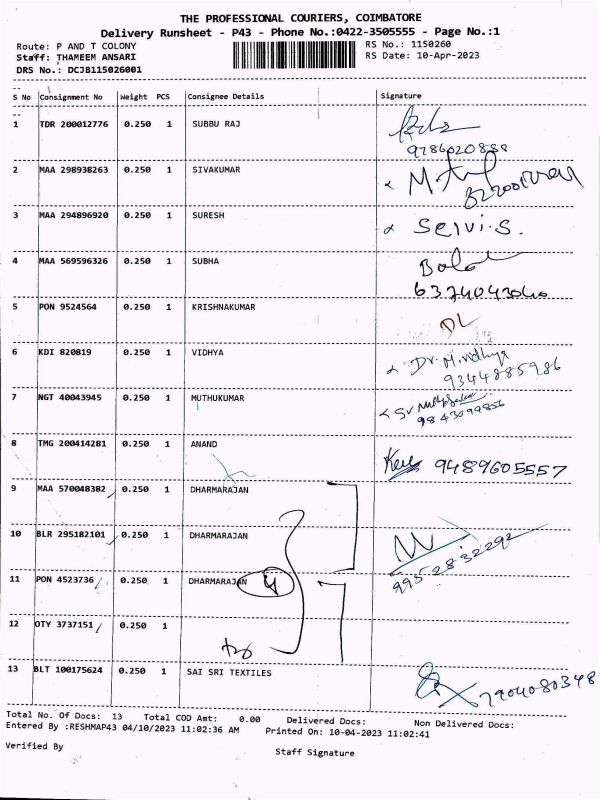 THE PROFESSIONAL COURIERS, COIMBATORE
Delivery Runsheet - P43 - Phone No.:0422-3505555 - Page No.:1
Route: P AND T COLONY RS No.: 1150260
Staff: THAMEEM ANSARI RS Date: 10-Apr-2023
DRS No.: DCJB115026001
S No Consignment No Weight PCS Consignee Details Signature
1 TDR 200012776 0.250 1 SUBBU RAJ
2 MAA 298938263 0.250 1 SIVAKUMAR
3 MAA 294896920 0.250 1 SURESH Selvi.S.
4 MAA 569596326 0.250 1 SUBHA
5 PON 9524564 0.250 1 KRISHNAKUMAR DL
6 KDI 820819 0.250 1 VIDHYA Dr. M. Vidhya
9344885986
7 NGT 40043945 0.250 1 MUTHUKUMAR
9843099856
8 TMG 200414281 0.250 1 ANAND 9489605557
9 MAA 570048382 0.250 1 DHARMARAJAN
10 BLR 295182101 0.250 1 DHARMARAJAN
9952832292
11 PON 4523736 0.250 1 DHARMARAJAN 4
12 OTY 3737151 0.250 1
13 BLT 100175624 0.250 1 SAI SRI TEXTILES 7904080348
Total No. Of Docs: 13 Total COD Amt: 0.00 Delivered Docs: Non Delivered Docs:
Entered By :RESHMAP43 04/10/2023 11:02:36 AM Printed On: 10-04-2023 11:02:41
Verified By Staff Signature